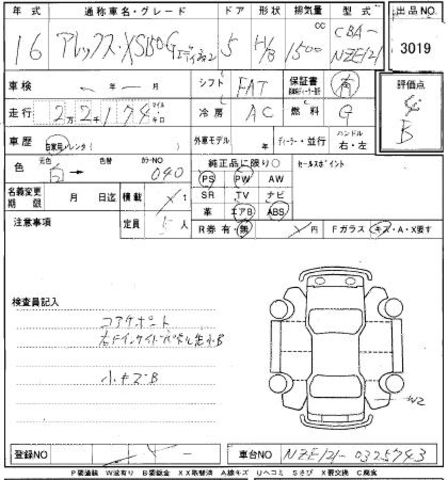 年式 通称車名・グレード ドア 形状 排気量 型式 出品NO
16 アレックス・XS150Gエディション 5 H/B 1500 cc CBA-NZE121 3019
車検 年 月 シフト FAT 保証書 有 評価点
走行 2万2千174 キロ 冷房 AC 燃料 G 4 B
車歴 自家用・レンタ( ) 外車モデル 年 ディーラー・並行 ハンドル 右・左
色 元色 白 → 色替 カラーNO 040
純正品に限り○ セールスポイント
PS PW AW
名義変更期限 月 日迄 積載 t SR TV ナビ
定員 5 人 革 エアB ABS
注意事項 R券 有・無 円 Fガラス キズ・A・X要す
検査員記入
コアサポート
小キズB
W2
登録NO 車台NO NZE121-0325743
P要塗装 W波有り B要鈑金 XX取替済 A線キズ Uヘコミ Sさび X要交換 C腐食